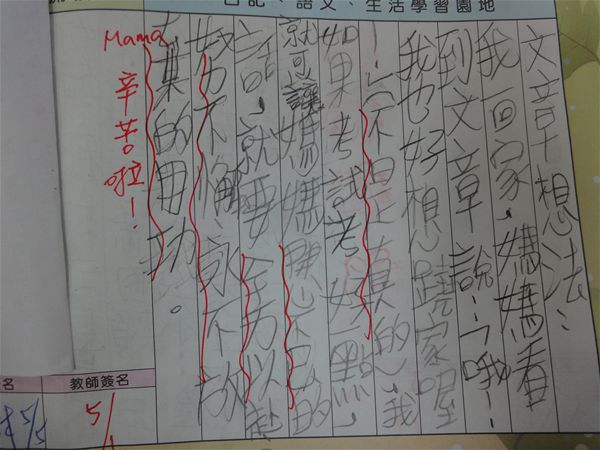 日記、語文、生活學習園地
文章想法：
我一回家，媽媽看
到文章說：「哦！
我也好想蹺家喔
！」(不是真的)，我
如果考試考好一點，
就可讓媽媽開心不已的
話，就要全力以赴
努力不懈永不放
棄的用功。
Mama
辛苦啦！
教師簽名
名
5/
5/5